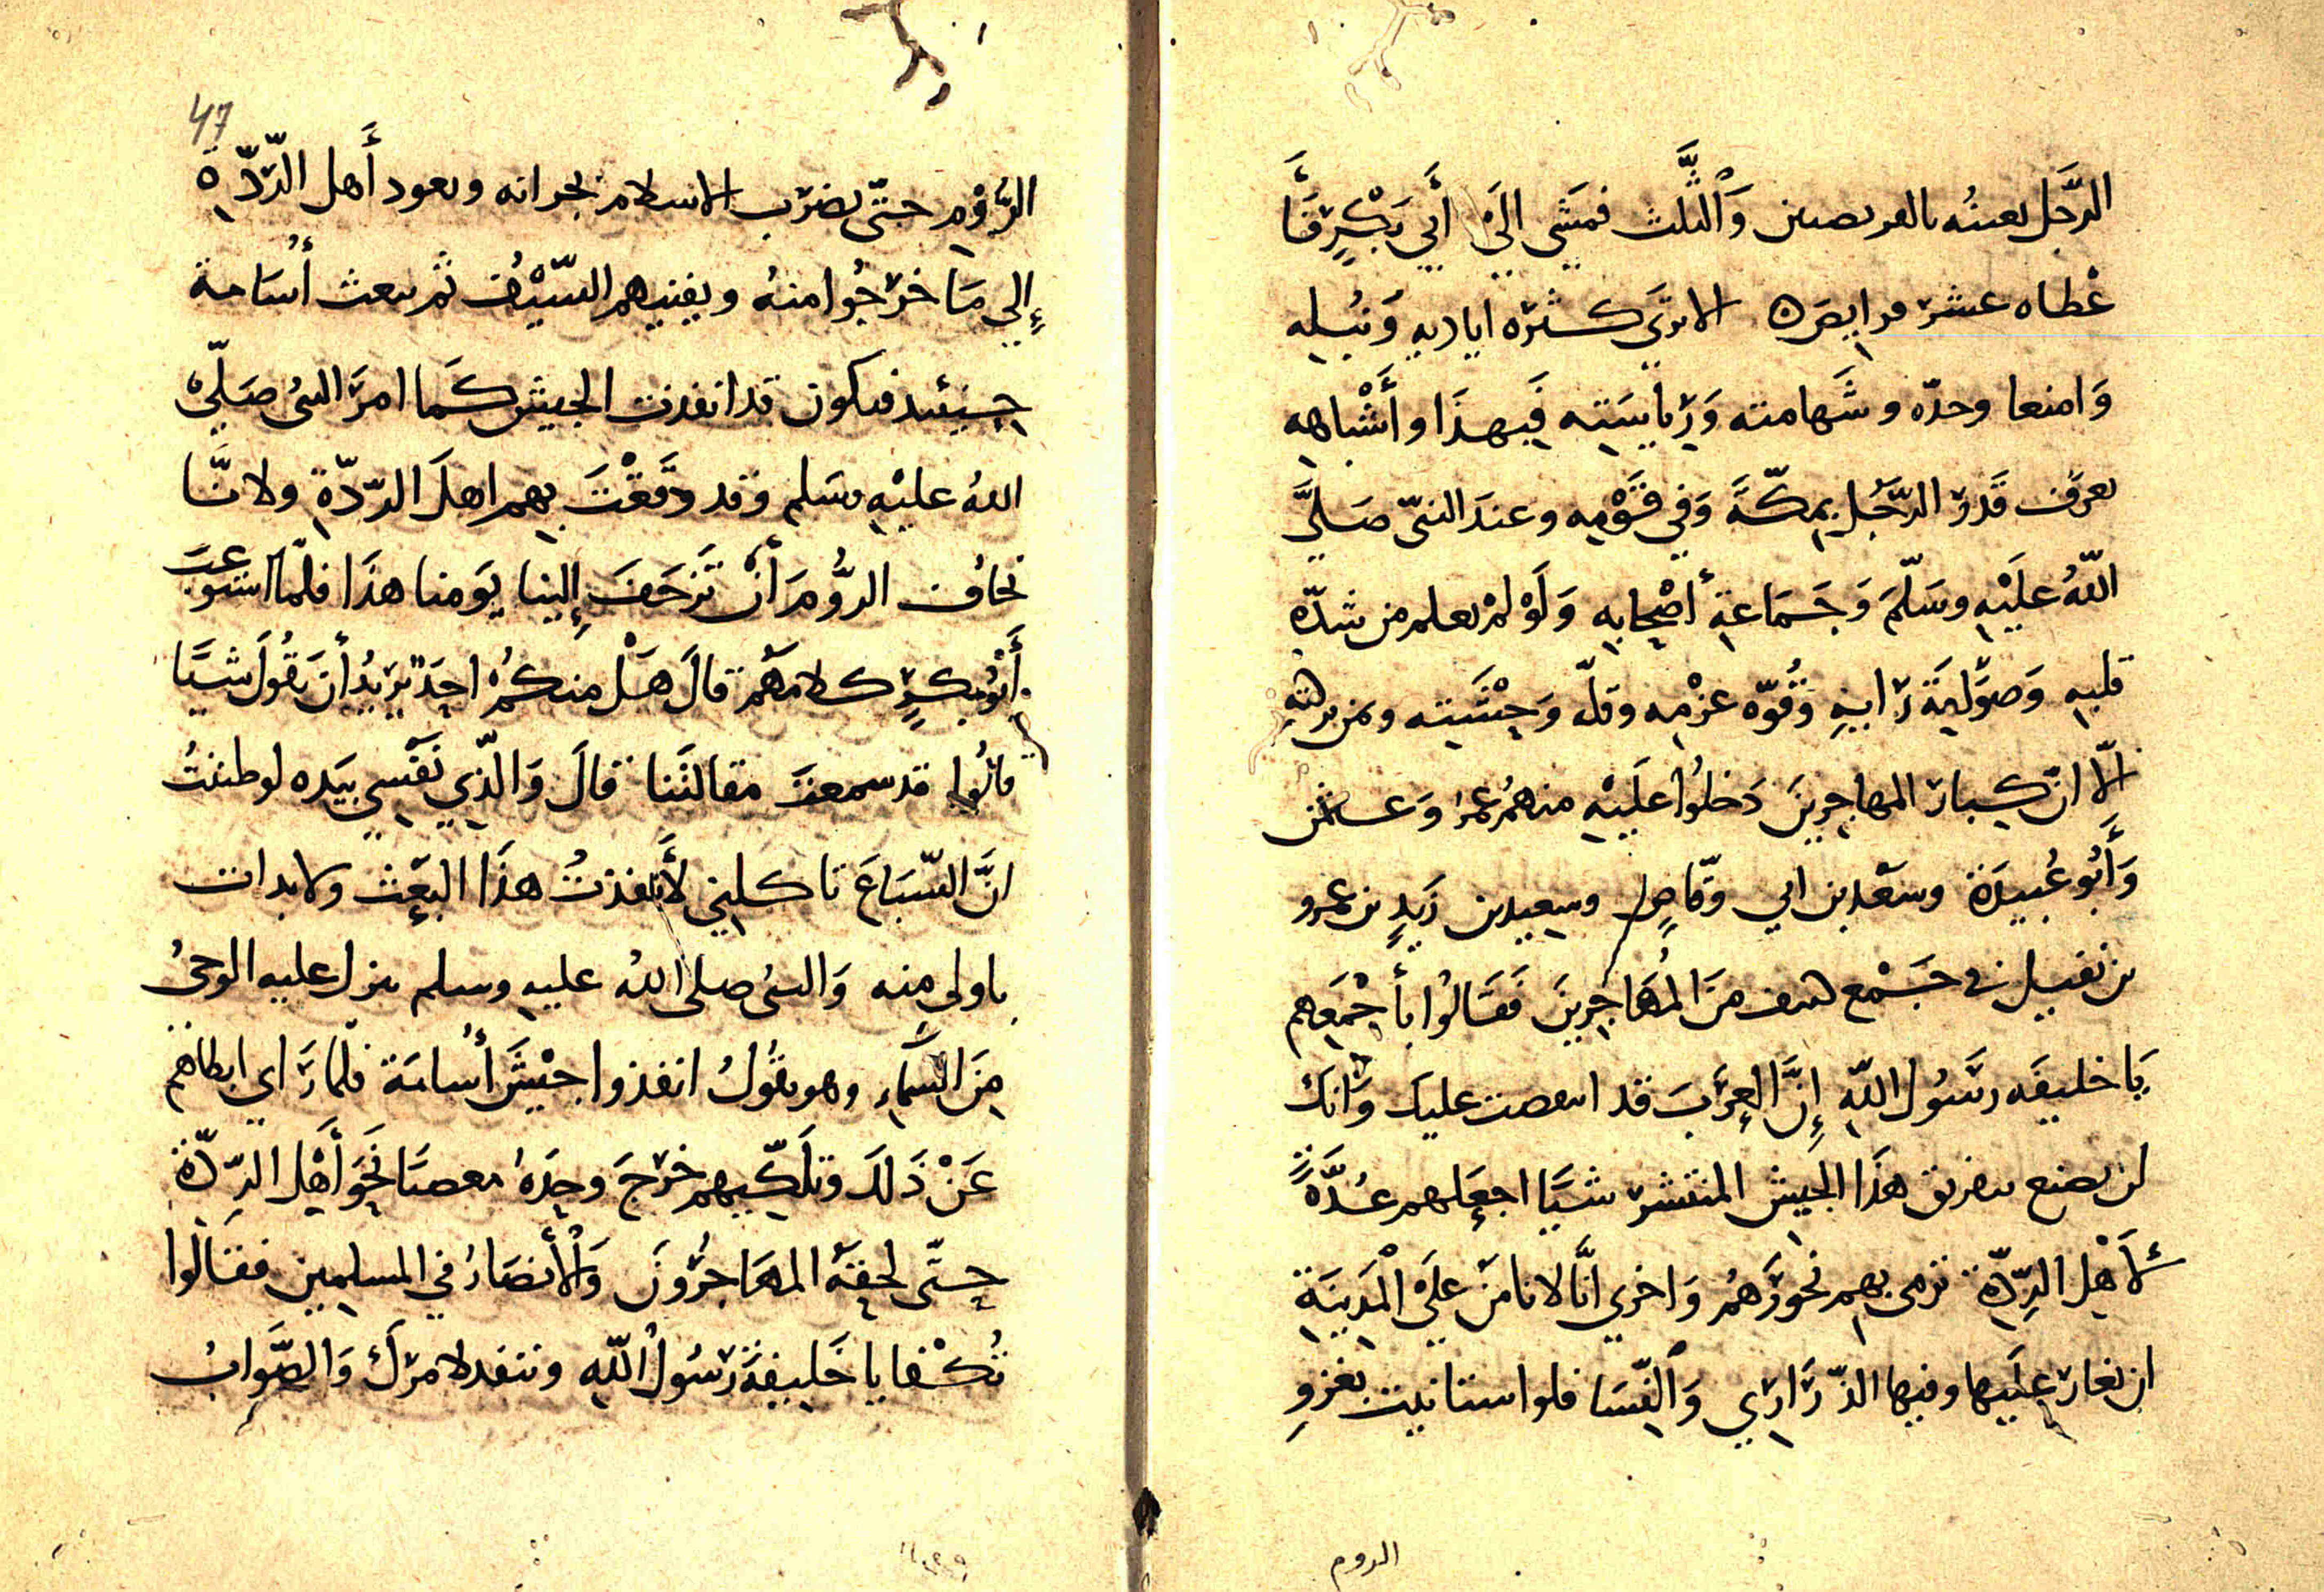 الرَّجل بعينه بالفريصتين وَالثَّلث فمَشَى الَى أَبي بَكْرٍ فَأَ
عْطاه عشر فرايصَ ه الا ترى كثره اياديه وَنبُله
وَامنعا وحدّه وشَهامته وَرِيَاسَته فَبِهذَا وأَشْباهِه
يعرف قَدرَ الرّجُل بمكّةَ وَفي قَوْمِه وعندَ النبّى صَلىَّ
اللّهُ علَيْهِ وسَلّمَ وَجَمَاعةِ أصْحابِه وَلَوْ لمْ يعلم من شدّه
قلبه وَصوَّلية رَايهِ وَقُوّه عزْمِه وقلّه وَحِشَتِه ومن
الّا انّ كِبارَ المهاجِرِينَ دَخلُوا علَيْهِ منهمُ عُمَر وَعثمن
وَأَبُو عُبيدَة وسَعْد بن ابي وقّاصٍ وسِعيد بن زَيدٍ بن عمرو
بن نفيل في جَمْعٍ من المُهَاجِرِينَ فَقَالُوا بأَجْمَعِهم
يَا خليفَه رسَُول اللّهِ إِنَّ العرَبَ قد انتقصت عليك وَانك
لن تصنع بتفريق هذَا الجيش المنتشر شيَّا اجعَلهم عُدَّةً
لأَهْلِ الرِّدّةِ ترمى بهم نحورَهمُ وَاخري انَّا لا نامَنْ علَى المَدِينَةِ
ان يغارَ علَيها وفيها الذّرَارِي وَالنِّسَا فلو استانيت بغزوِ
الروم
47
الرُّوْمِ حتّى يضرَب الاسلام بجرانه ويعود أَهل الرِّدّةِ
إِلي مَا خرَجُوا منهُ ويفنيهم السّيْفُ ثم تبعث أُسَامة
حِينئِذ فتكون قد انفذت الجيش كَما امرَ النبيُ صَلّى
اللهُ عليْهِ وسَلم وقد دفَعْتَ بِهم اهلَ الرّدّةِ ولانَّا
نحاف الرُّومَ أنْ تَزحَفَ إِلينا يَومنا هذَا فلّما استوعبَ
أَبُو بكرٍ كلامَهم قالَ هَلْ منكُمْ احَد يُرِيدُ أنَ يقُولَ شيَّا
قالُوا قد سمعتَ مقالتَنا قالَ وَالّذِي نَفْسِي بيَده لو ظننتُ
انَّ السّبَاعَ تاكلني لأَنفذتُ هذَا البَعْث ولا بدات
باولى منه وَالنبيُ صلى اللهُ عليهِ وسلم ينزل عليه الوحيُ
مِنَ السَّمآءِ وهو يقُولُ انفذوا جيْشَ أُسامَة فلّما رَاي ابطاهم
عَنْ ذَلكَ وتلَكّيهم خرَجَ وحدَهُ معصبَا نحَوَ أَهِل الرِّدّةِ
حتّى لحقِهُ المهَاجرُونَ وَالأَنصَارُ في المسلِمِين فقالُوا
تُكْفا يا خَليفِةَ رَسُولُ اللّهِ وننفد لامرَك وَالصَّوابُ